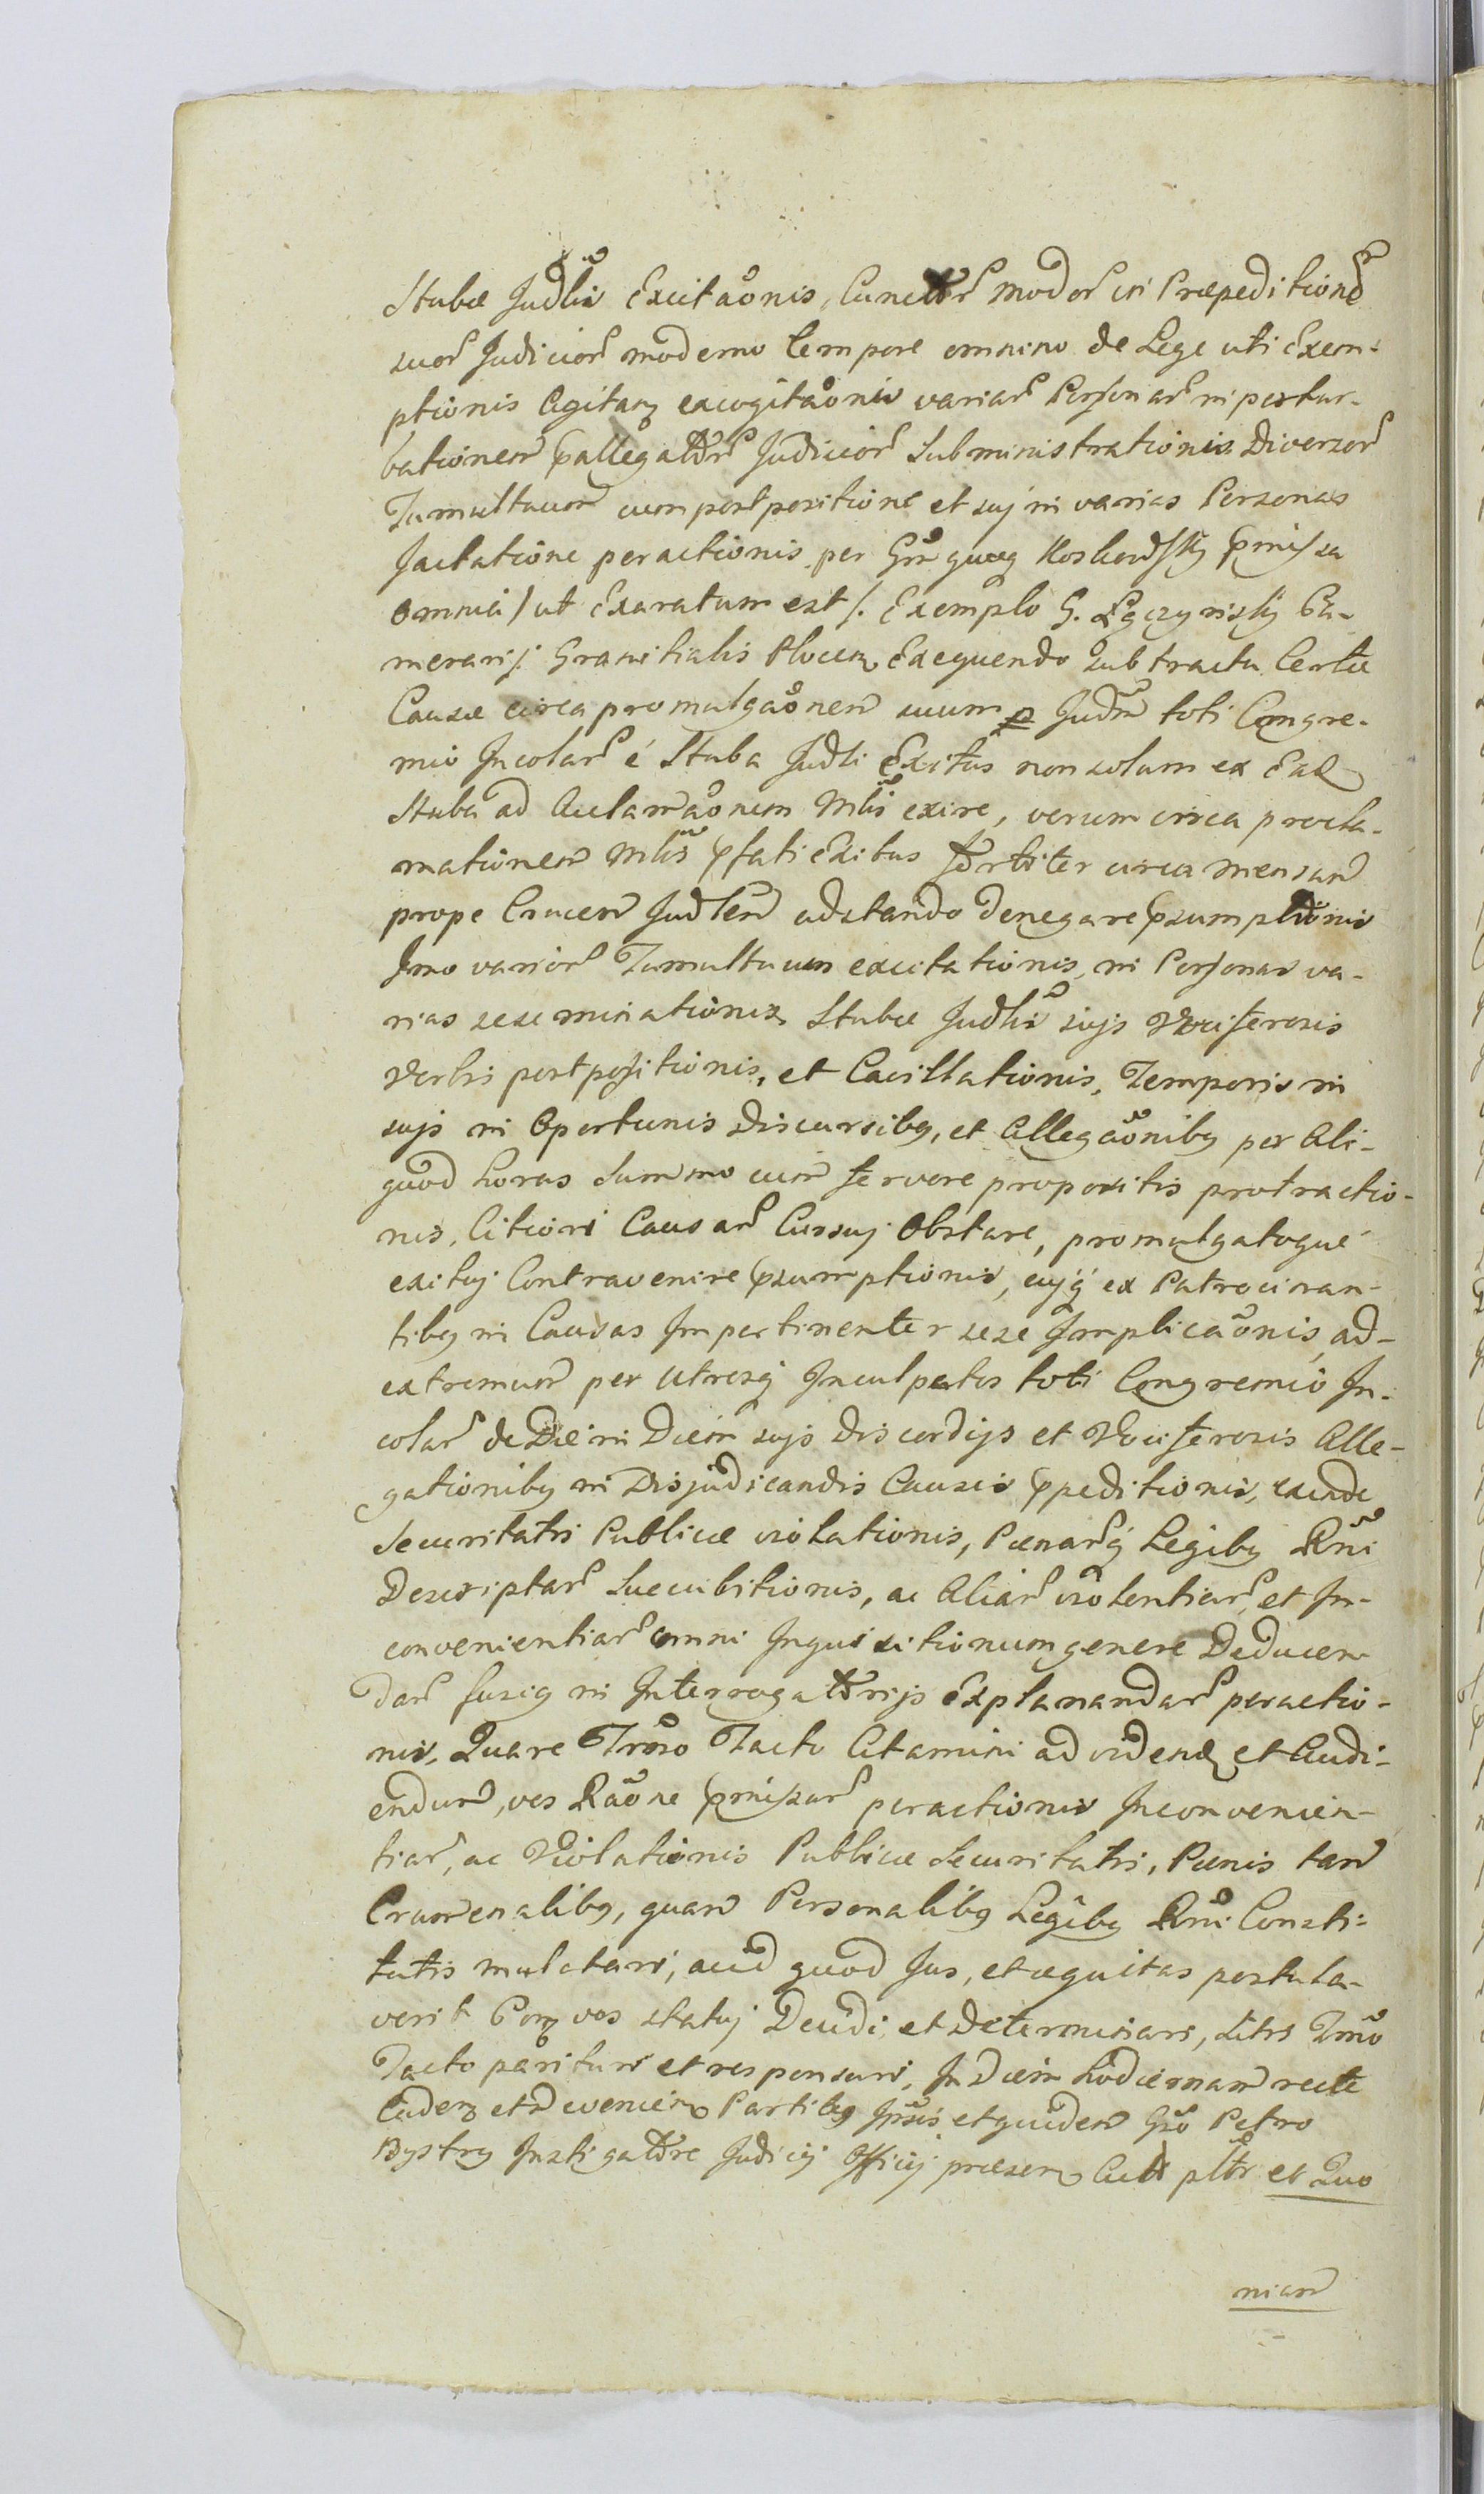 Stubæ Judlis Excitaonis, Cunctor modor in Præpeditione
suor Judicior moderno tempore omnino de Lege uti Exem-
ptionis Agitan excogitaonis variar Personar in pertur-
bationem pallegator Judicior Subministrationis Diversor
Tumultuum cum postpositione et suj in varias Personas
Jactatione peractionis per Gm quoq Koskowsky pmissa
omnia / ut Exaratum est /. Exemplo G. Łączynsky Ca-
merarij Granitialis Plocen Exequendo sub tractu Certæ
Causæ circa promulgaonem suum p Judm toti Congre-
mio Incolar é Stuba Judli Exitus non solum ex Ead
Stuba ad Aclamaonem Mlis exire, verum circa procla-
mationem Mlis pfati Exitus fortiter circa mensam
prope Crucem Judlem adstando denegare psumptionis
Imo varior Tumultuum excitationis, in Personas va-
rias sese minationis Stubæ Judlis sujs Vociferosis
Verbis postpositionis, et Cavillationis, Temporis in
sujs in Oportunis Discursibq, et Allegaonibq per Ali-
quod horas Summo cum fervore propositis protractio-
nis, Citiori Causar Cursuj Obstare, promulgatoque
exituj Contravenire psumptionis, cujq ex Patrocinan-
tibq in Causas Impertinenter sese Implicaonis, ad-
extremum per Utrosq Inculpatos toti Congremio In-
colar de Die in Diem sujs Discordijs et Vociferosis Alle-
gationibq in Disjudicandis Causis ppeditionis, exinde
Securitatis Publicæ violationis, Pœnarq Legibq Rni
Descriptar Succubitionis, ac Aliar violentiar, et In-
convenientiar omni Inquisitionum genere Deducen-
dar fusiq in Interrogatorijs Explanandar peractio-
nis, Quare Trmo Tacto Citamini ad vidend et Audi-
endum, vos Raone pmissar peractionis Inconvenien-
tiar, ac Violationis Publicæ Securitatis, Pœnis tam
Crumenalibq, quam Personalibq Legibq Rni Consti-
tutis mulctari, aliud quod Jus, et æquitas postula-
verit Con vos statuj Decidi, et Determinari, sitis Trmo
Tacto parituri et responsuri, In Diem hodiernam recte
Caden et Devenien Partibq Ipsis et quidem Gso Petro
Bystry Instigatore Judicij Officij præsen Aulí pltr et Quo
niam